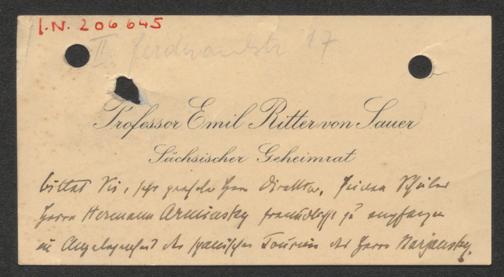 I.N. 206645
II. Ferdinandstr 17
Professor Emil Ritter von Sauer
Sächsischer Geheimrat
bittet Sie, sehr geehrter Herr Direktor, seinen Schüler
Herrn Hermann Arminsky freundlichst zu empfangen
in Angelegenheit der spanischen Tournée des Herrn Marjansky.